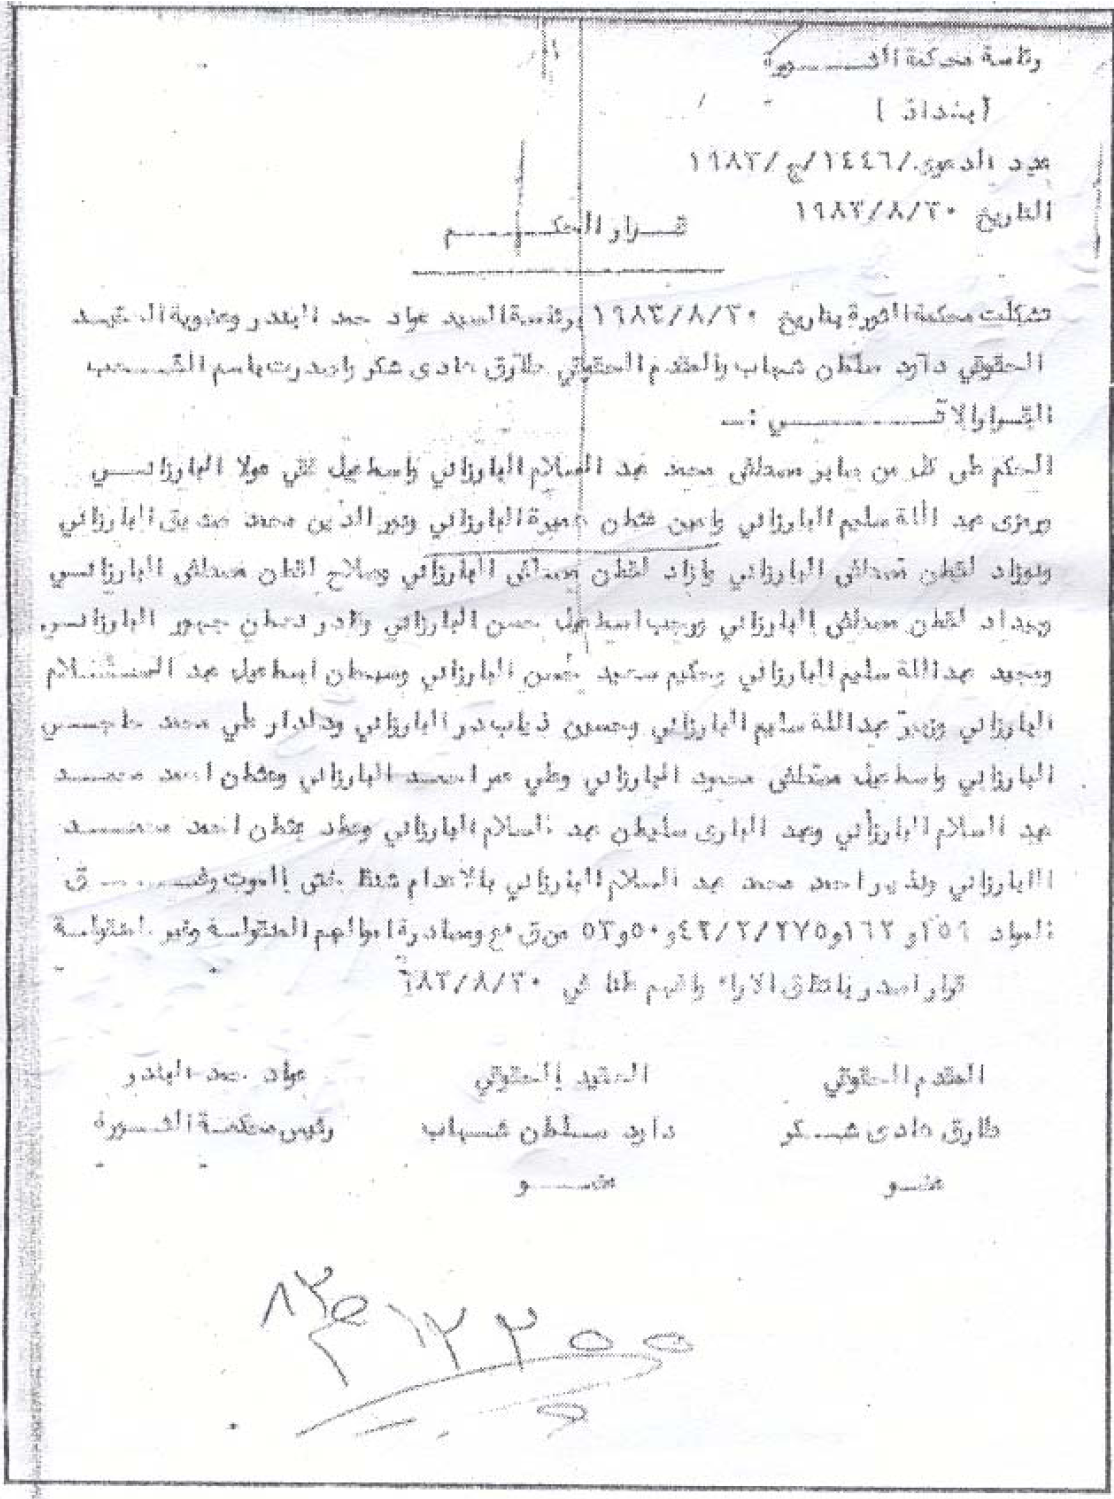 رئاسة محكمة الثـــورة
( بغداد )
عدد الدعوى/١٤٤٦/ج/١٩٨٣
التاريخ ١٩٨٣/٨/٣٠
قـــرار الحكـــــم
تشكلت محكمة الثورة بتاريخ ١٩٨٣/٨/٣٠ برئاسة السيد عواد حمد البندر وعضوية العقيـد
الحقوقي داود سلمان شهاب والمقدم الحقوقي طارق هادى شكر واصدرت باسم الشـــعب
القرار الاتـــــــــي :ــ
الحكم على كل من صابر مصطفى محمد عبد السلام البارزاني واسماعيل تقي مولا البارزانـــي
عبد الله سليم البارزاني وامين عثمان البارزاني ونور الدين محمد صديق البارزاني
ونوزاد لقمان مصطفى البارزاني وازاد لقمان مصطفى البارزاني وصلاح لقمان مصطفى البارزانـي
لقمان مصطفى البارزاني ورجب اسماعيل حسن البارزاني وقادر نعمان جمهور البارزانـي
ومجيد عبد الله سليم البارزاني وحكيم سعيد حسن البارزاني وسليمان اسماعيل عبد الســـلام
البارزاني وزبير عبد الله سليم البارزاني وحسين ذياب در البارزاني ودلدار علي محمد
البارزاني واسماعيل مصطفى محمود البارزاني وعلي عمر احمـد البارزاني وعثمان احمد محمـــد
عبد السلام البارزاني وعبد البارى سليمان عبد السلام البارزاني وعماد عثمان احمد محمـــد
البارزاني ونذير احمد محمد عبد السلام البارزاني بالاعدام شنقا حتى الموت وفـــــــق
المواد ١٥٦ و ١٦٢ و ٤٢/٢/٢٧٥ و ٥٠ و ٥٣ من ق ع ومصادرة اموالهم المنقولة وغير المنقولـة
قرار صدر باتفاق الاراء وافهم علنا في ٩٨٣/٨/٣٠
المقدم الحقوقي
طارق هادى شـــكر
عضـــو
العقيد الحقوقي
داود سـلمان شـهاب
عضـــــو
عواد حمد البندر
رئيس محكمـة الثـــورة